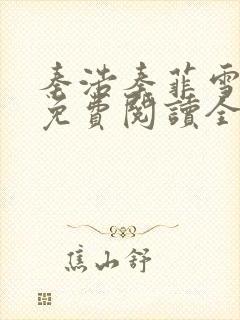 秦浩秦菲雪
免費閱讀全
焦山舒